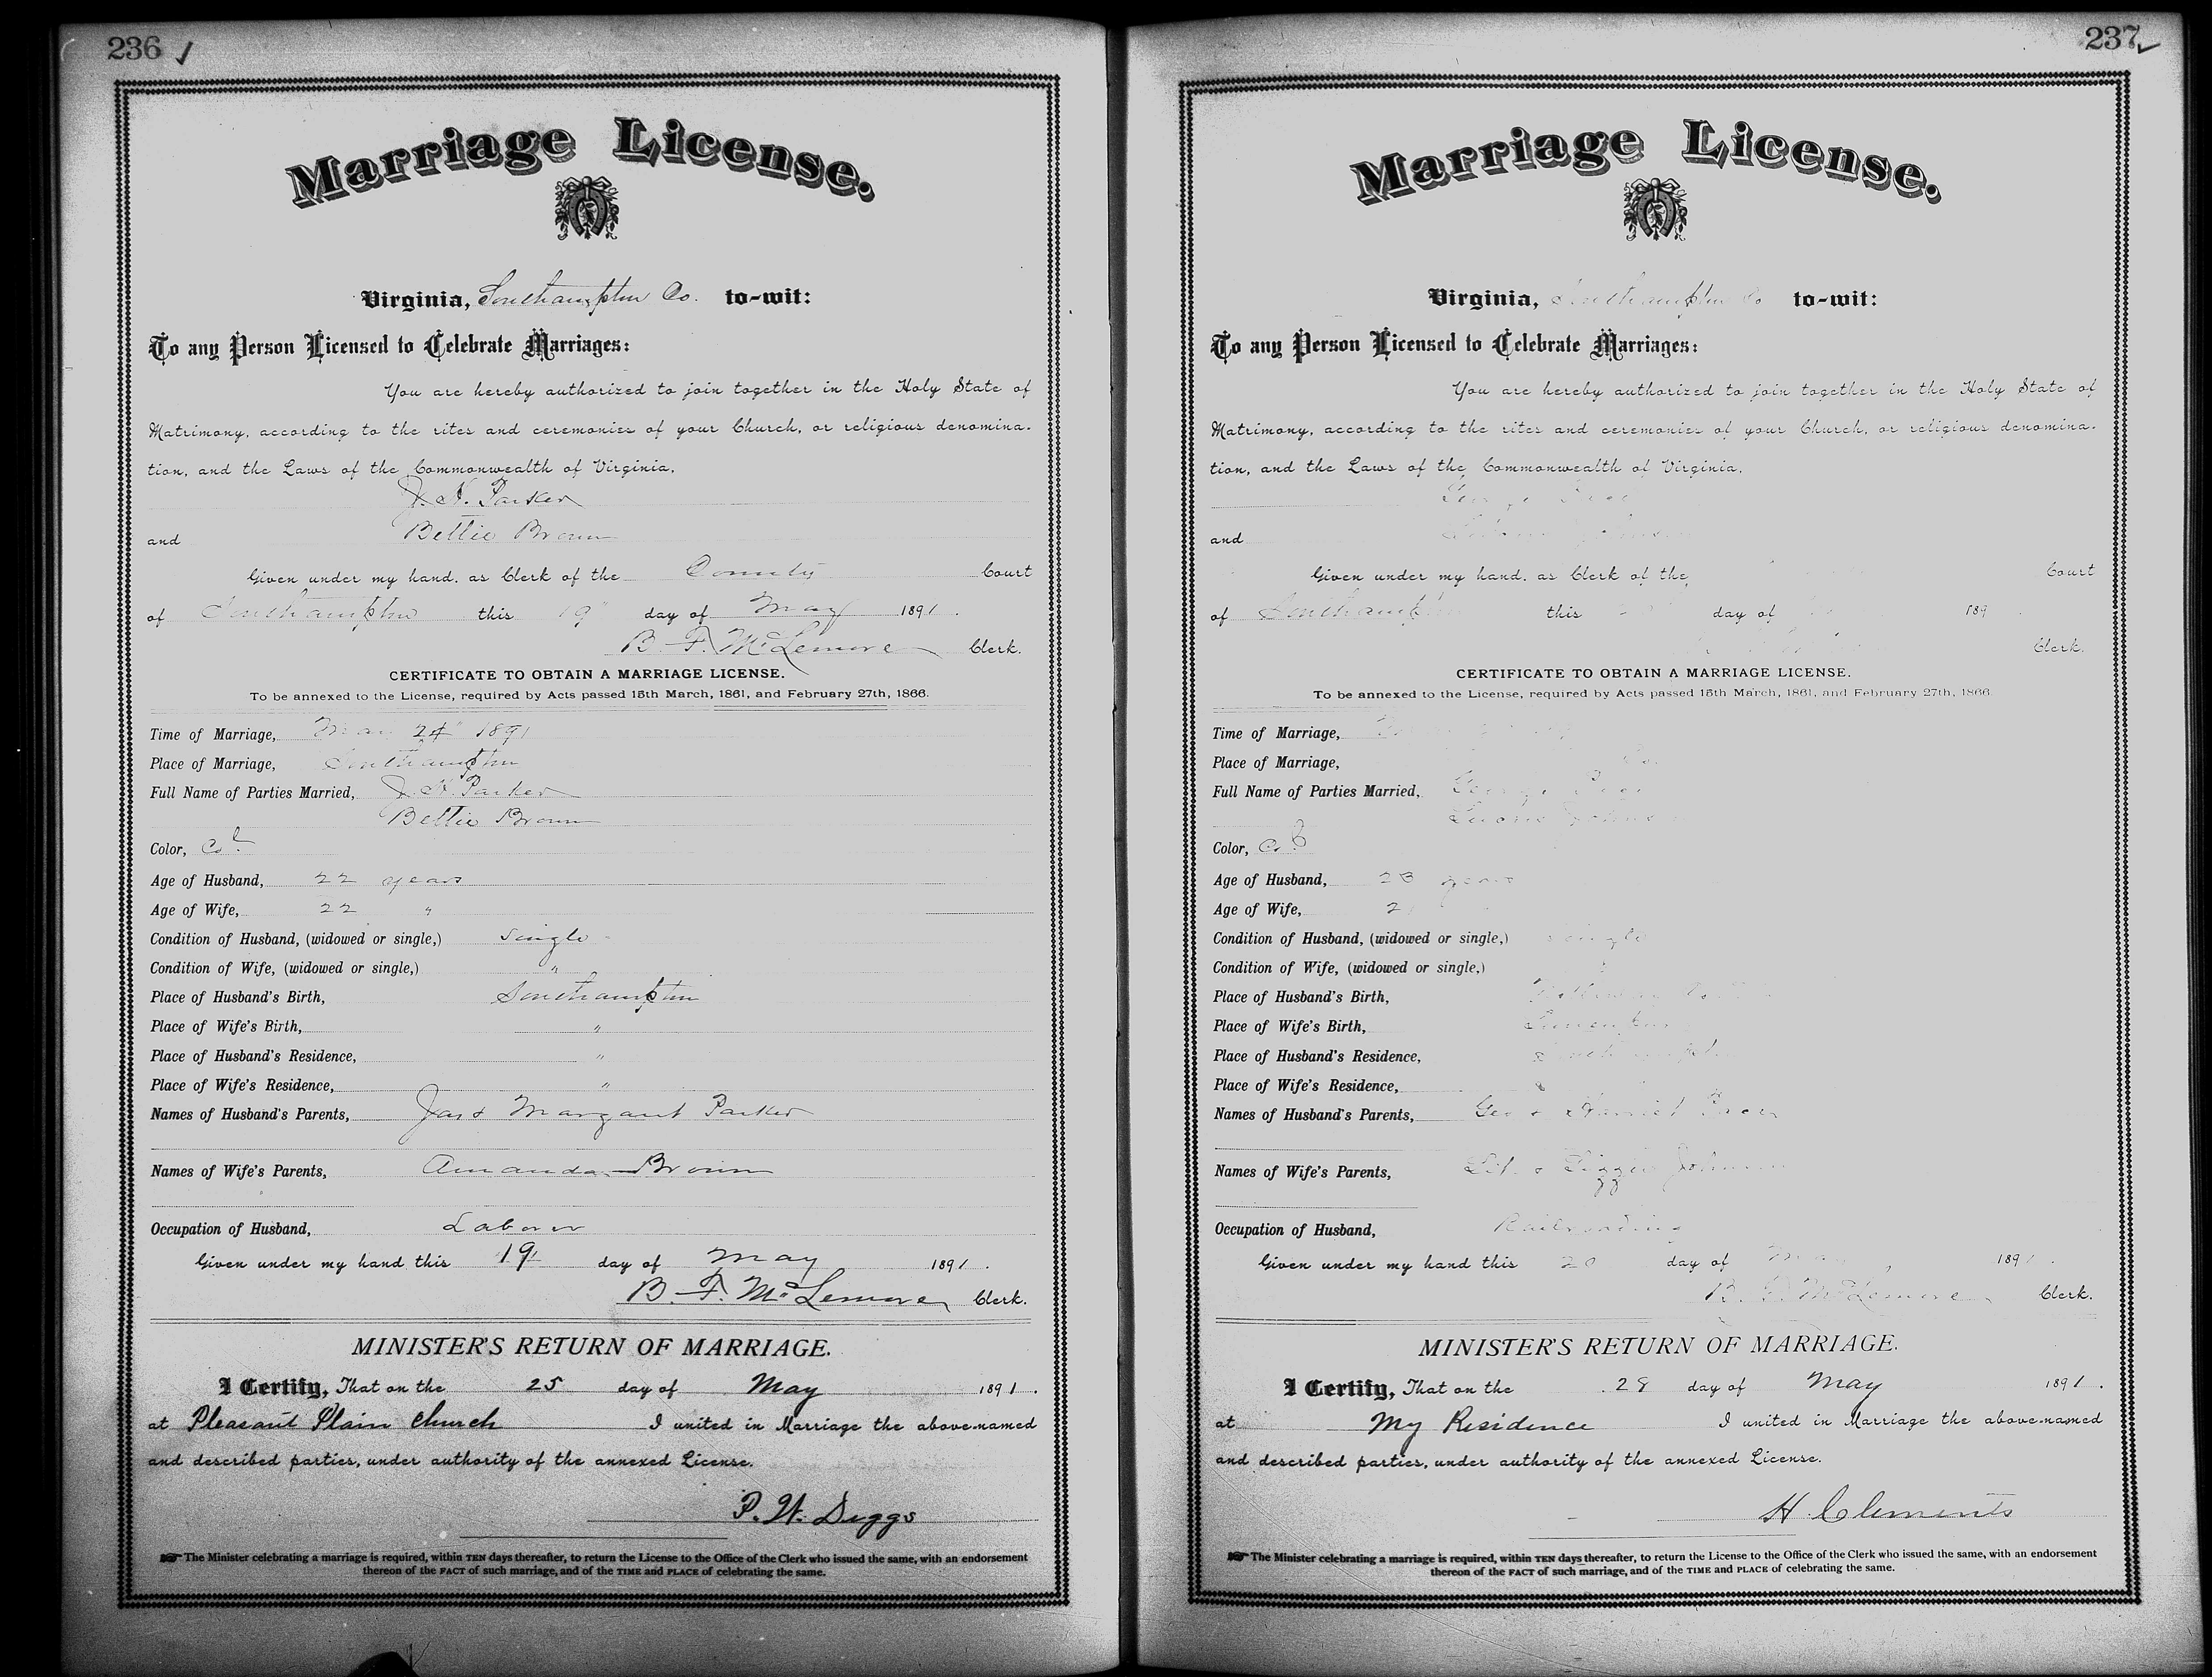 236
Marriage License.
Virginia, Southampton Co. to-wit:
To any Person Licensed to Celebrate Marriages:
You are hereby authorized to join together in the Holy State of
Matrimony, according to the rites and ceremonies of your Church, or religious denomina-
tion, and the Laws of the Commonwealth of Virginia.
J. H. Parker
and Bettie Brown
Given under my hand. as Clerk of the County Court
of Southampton this 19" day of May 1891.
B. F. McLemore Clerk.
CERTIFICATE TO OBTAIN A MARRIAGE LICENSE.
To be annexed to the License, required by Acts passed 15th March, 1861, and February 27th, 1866.
Time of Marriage, May 24" 1891
Place of Marriage, Southampton
Full Name of Parties Married, J. H. Parker
Bettie Brown
Color, Col
Age of Husband, 22 years
Age of Wife, 22 "
Condition of Husband, (widowed or single,) Single
Condition of Wife, (widowed or single,) "
Place of Husband's Birth, Southampton
Place of Wife's Birth, "
Place of Husband's Residence, "
Place of Wife's Residence, "
Names of Husband's Parents, Jas & Margaret Parker
Names of Wife's Parents, Amanda Brown
Occupation of Husband, Laborer
Given under my hand this 19 day of May 1891.
B. F. McLemore Clerk.
MINISTER'S RETURN OF MARRIAGE.
I Certify, That on the 25 day of May 1891.
at Pleasant Plain church I united in Marriage the above-named
and described parties, under authority of the annexed License.
P. W. Diggs
The Minister celebrating a marriage is required, within TEN days thereafter, to return the License to the Office of the Clerk who issued the same, with an endorsement
thereon of the FACT of such marriage, and of the TIME and PLACE of celebrating the same.
237
Marriage License.
Virginia, Southampton Co to-wit:
To any Person Licensed to Celebrate Marriages:
You are hereby authorized to join together in the Holy State of
Matrimony, according to the rites and ceremonies of your Church, or religious denomina-
tion, and the Laws of the Commonwealth of Virginia.
George
and
Given under my hand. as Clerk of the Court
of Southampton this day of 189
Clerk.
CERTIFICATE TO OBTAIN A MARRIAGE LICENSE.
To be annexed to the License, required by Acts passed 15th March, 1861, and February 27th, 1866.
Time of Marriage,
Place of Marriage,
Full Name of Parties Married, George
Color, Col
Age of Husband, 23 years
Age of Wife, 21
Condition of Husband, (widowed or single,) Single
Condition of Wife, (widowed or single,)
Place of Husband's Birth,
Place of Wife's Birth,
Place of Husband's Residence, Southampton
Place of Wife's Residence,
Names of Husband's Parents, Geo & Harriet
Names of Wife's Parents, & Lizzie Johnson
Occupation of Husband, Railroading
Given under my hand this 20 day of May 1891.
B. F. McLemore Clerk.
MINISTER'S RETURN OF MARRIAGE.
I Certify, That on the 28 day of May 1891.
at My Residence I united in Marriage the above-named
and described parties, under authority of the annexed License.
H. Clements
The Minister celebrating a marriage is required, within TEN days thereafter, to return the License to the Office of the Clerk who issued the same, with an endorsement
thereon of the FACT of such marriage, and of the TIME and PLACE of celebrating the same.